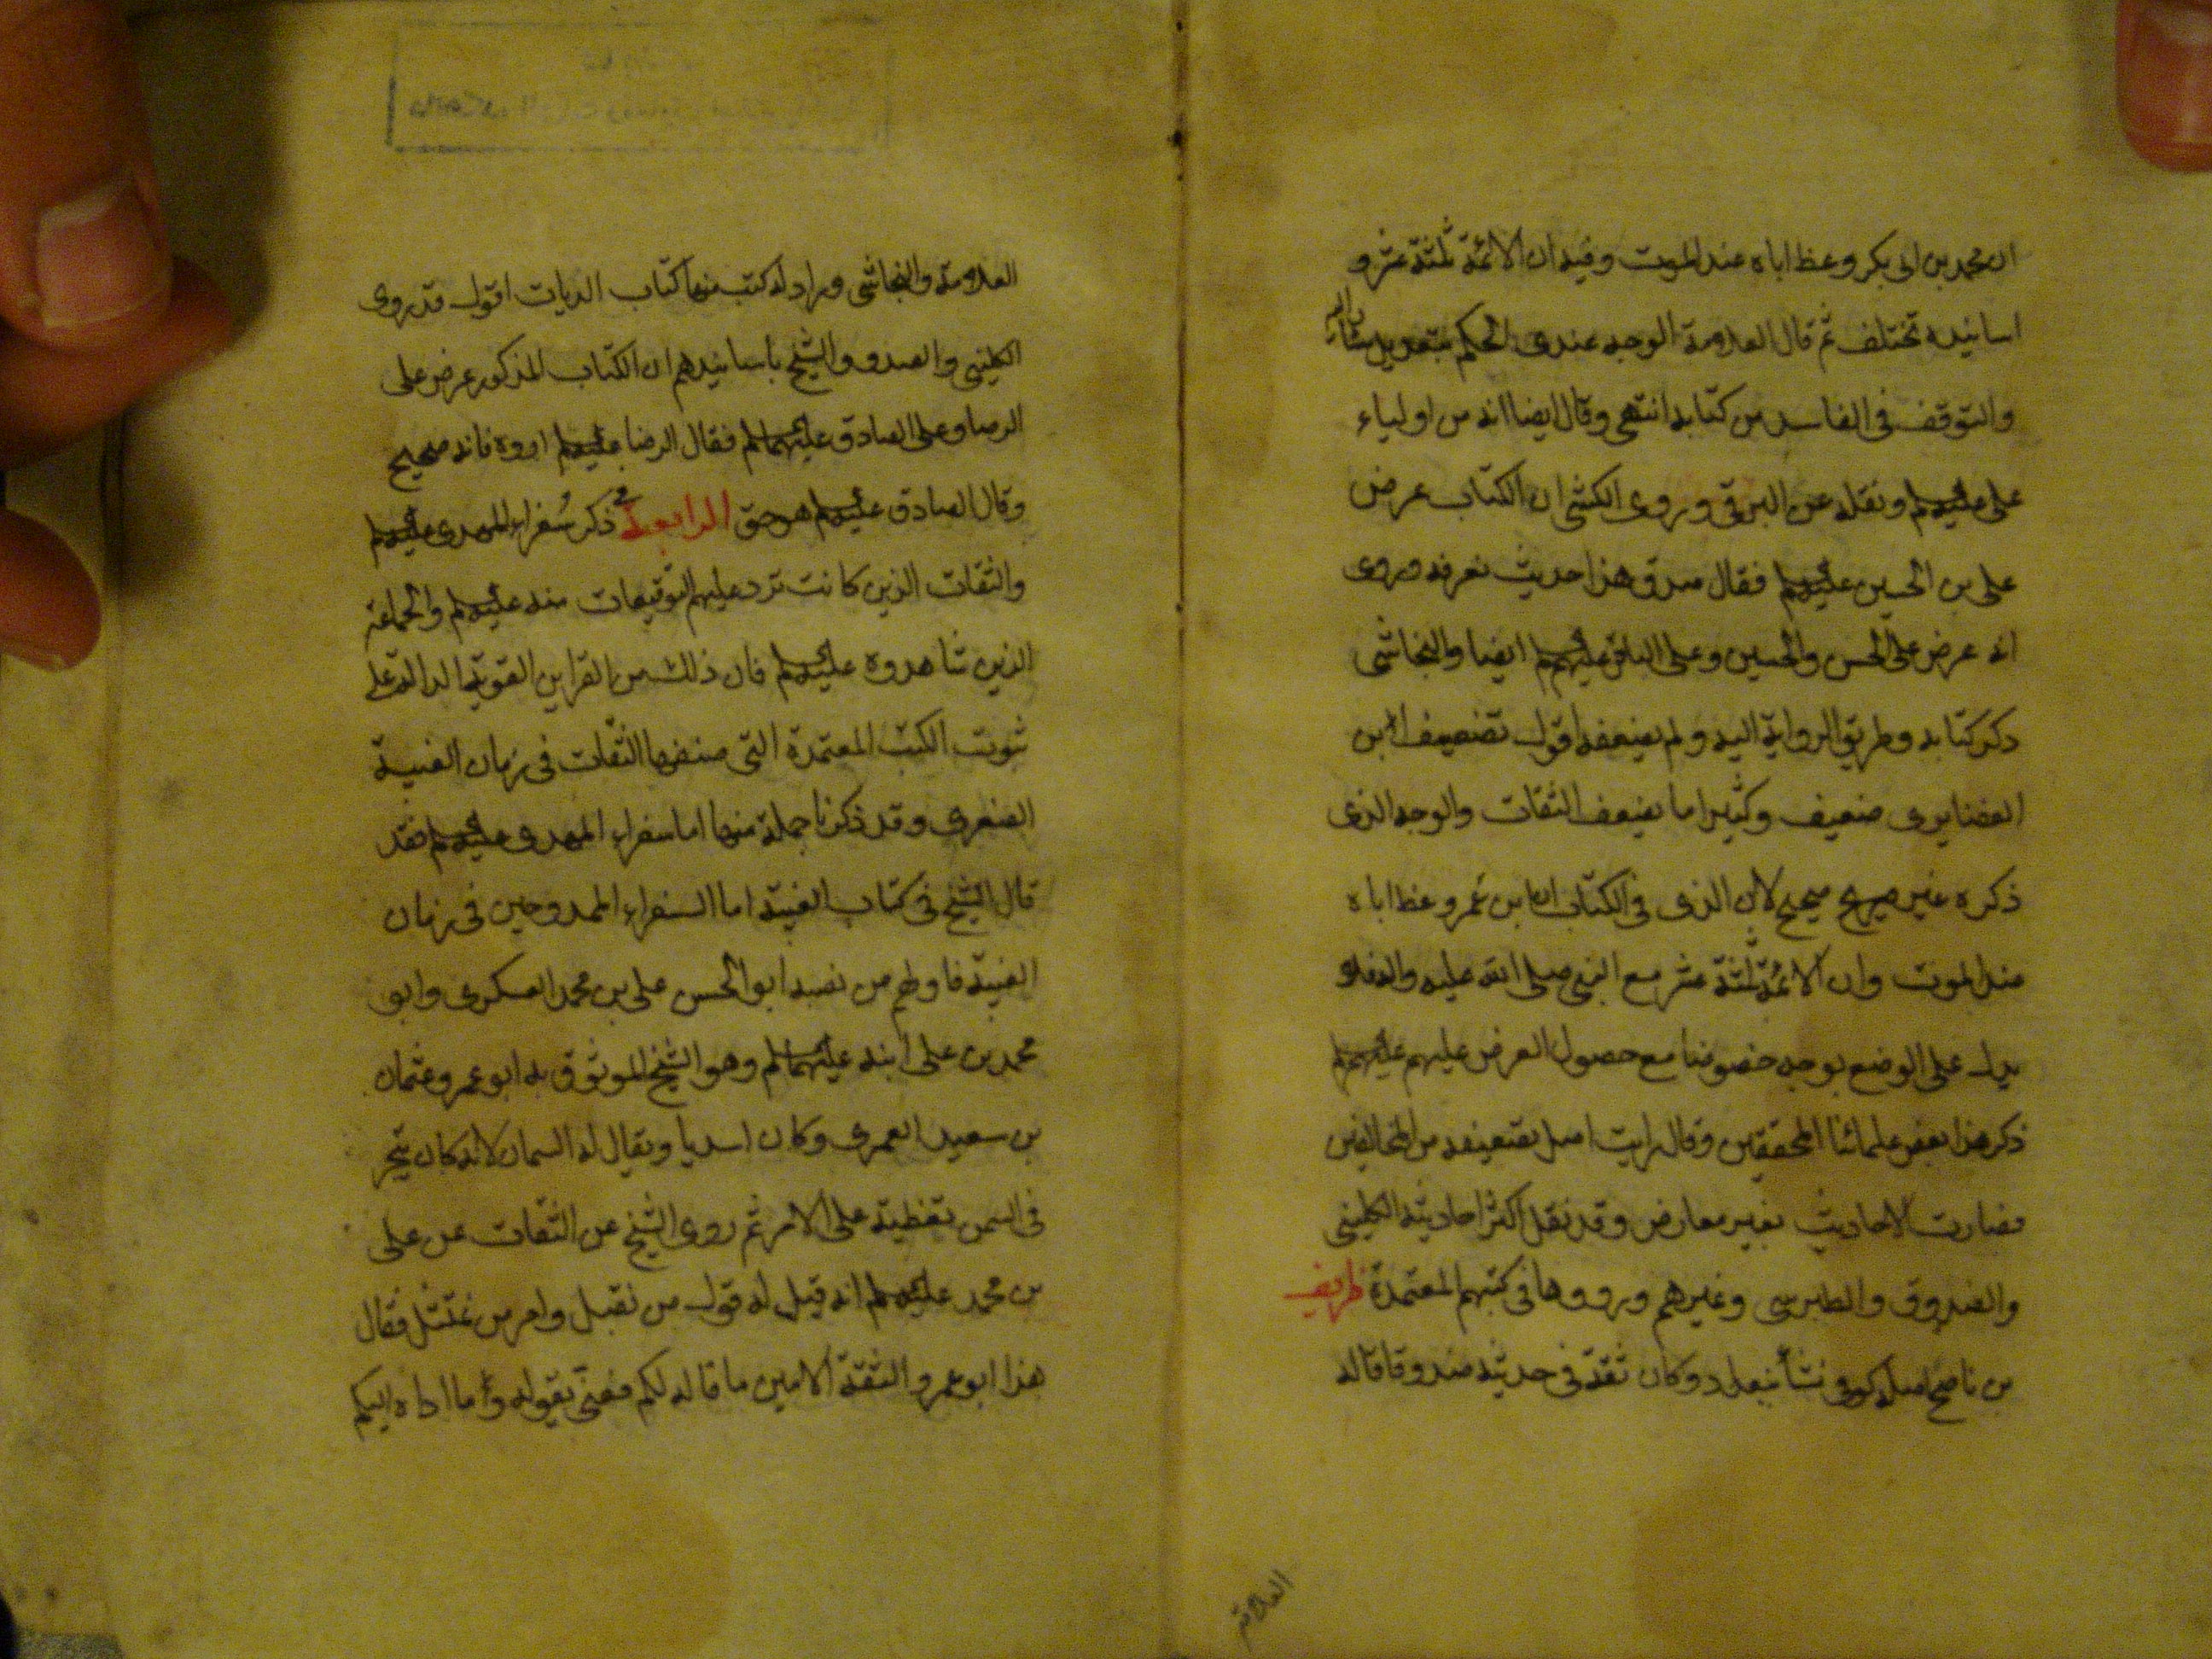 ان محمد بن ابى بكر وعظ اباه عند الموت وفيه ان الائمة ثلثة عشر و
اسانيده تختلف ثم قال العلامة الوجه عندى الحكم بتعديل المشار اليه
والتوقف فى الفاسد من كتابه انتهى وقال ايضا انه من اولياء
على عليه السلم ونقله عن البرقى وروى الكشى ان الكتاب عرض
على بن الحسين عليه السلم فقال صدق هذا حديث نعرفه وروى
انه عرض على الحسن والحسين وعلى الباقر عليهم السلم ايضا والنجاشى
ذكر كتابه وطريق الرواية اليه ولم يضعفه اقول تضعيف ابن
الغضايرى ضعيف وكثيرا ما يضعف الثقات والوجه الذى
ذكره غير صحيح لان الذى فى الكتاب ان ابن عمر وعظ اباه
عند الموت وان الائمة ثلثة عشر مع النبى صلى الله عليه واله فلا
يدل على الوضع بوجه خصوصا مع حصول العرض عليهم عليهم السلم
ذكر هذا بعض علمائنا المحققين وقال رايت اصل تضعيفه من المخالفين
فصارت الاحاديث بغير معارض وقد نقل اكثر احاديثه الكلينى
والصدوق والطبرسى وغيرهم ورووها فى كتبهم المعتمدة ظريف
بن ناصح اصله كوفى نشأ ببغداد وكان ثقة فى حديثه صدوقا قاله
العلامة
العلامة والنجاشى وزاد له كتب منها كتاب الديات اقول قد روى
الكلينى والصدوق والشيخ باسانيدهم ان الكتاب المذكور عرض على
الرضا وعلى الصادق عليهما السلم فقال الرضا عليه السلم اروه فانه صحيح
وقال الصادق عليه السلم هو حق الرابعة فى ذكر سفراء المهدى عليه السلم
والثقات الذين كانت ترد عليهم التوقيعات منه عليه السلم والجماعة
الذين شاهدوه عليه السلم فان ذلك من القراين القوية الدالة على
ثبوت الكتب المعتمدة التى صنفها الثقات فى زمان الغيبة
الصغرى وقد ذكرنا جملة منها اما سفراء المهدى عليه السلم فقد
قال الشيخ فى كتاب الغيبة اما السفراء الممدوحين فى زمان
الغيبة فاولهم من نصبه ابو الحسن على بن محمد العسكرى وابو
محمد بن على ابنه عليهما السلم وهو الشيخ الموثوق به ابو عمرو عثمان
بن سعيد العمرى وكان اسديا ويقال له السمان لانه كان يتجر
فى السمن تغطية على الامر ثم روى الشيخ عن الثقات عن على
بن محمد عليه السلم انه قيل له قول من نقبل وامر من نمتثل فقال
هذا ابو عمرو الثقة الامين ما قاله لكم فعنى يقوله وما اداه اليكم